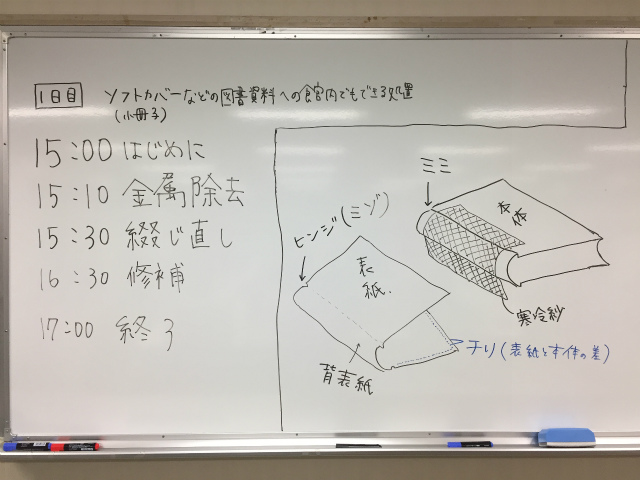 1日目 ソフトカバーなどの図書資料への館内でもできる処置
(小冊子)
15:00 はじめに
15:10 金属除去
15:30 綴じ直し
16:30 修補
17:00 終了
ミミ
本体
寒冷紗
ヒンジ(ミゾ)
表紙
背表紙
チリ(表紙と本体の差)